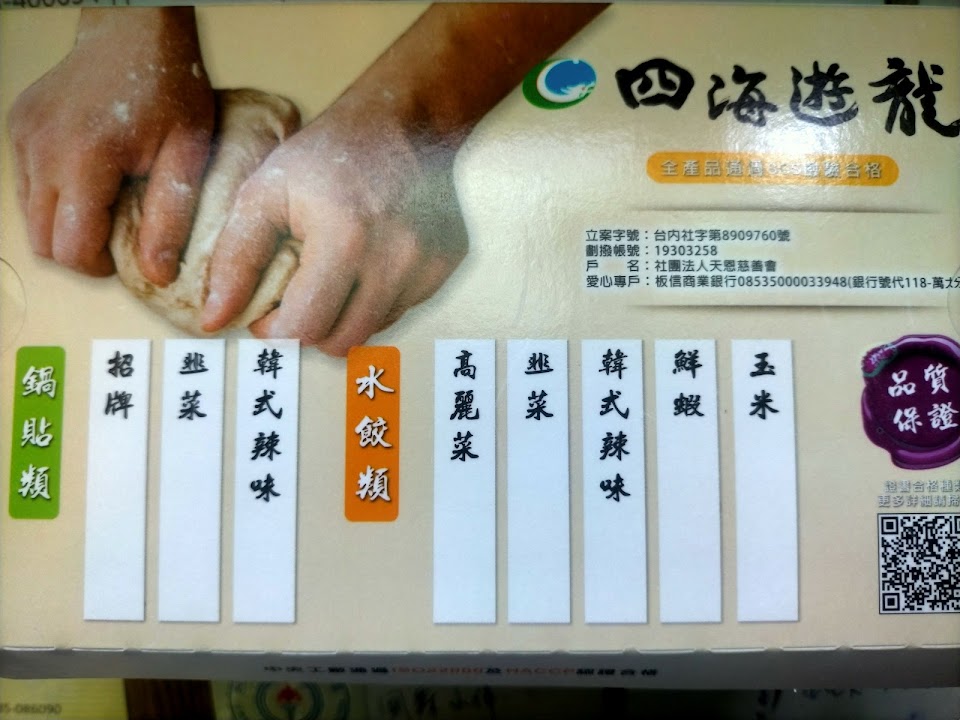 四海遊龍
立案字號：台內社字第8909760號
劃撥帳號：19303258
戶　　名：社團法人天恩慈善會
愛心專戶：板信商業銀行08535000033948(銀行號代118-萬
鍋貼類
招牌
韭菜
韓式辣味
水餃類
高麗菜
韭菜
韓式辣味
鮮蝦
玉米
品質
保證
35-086090